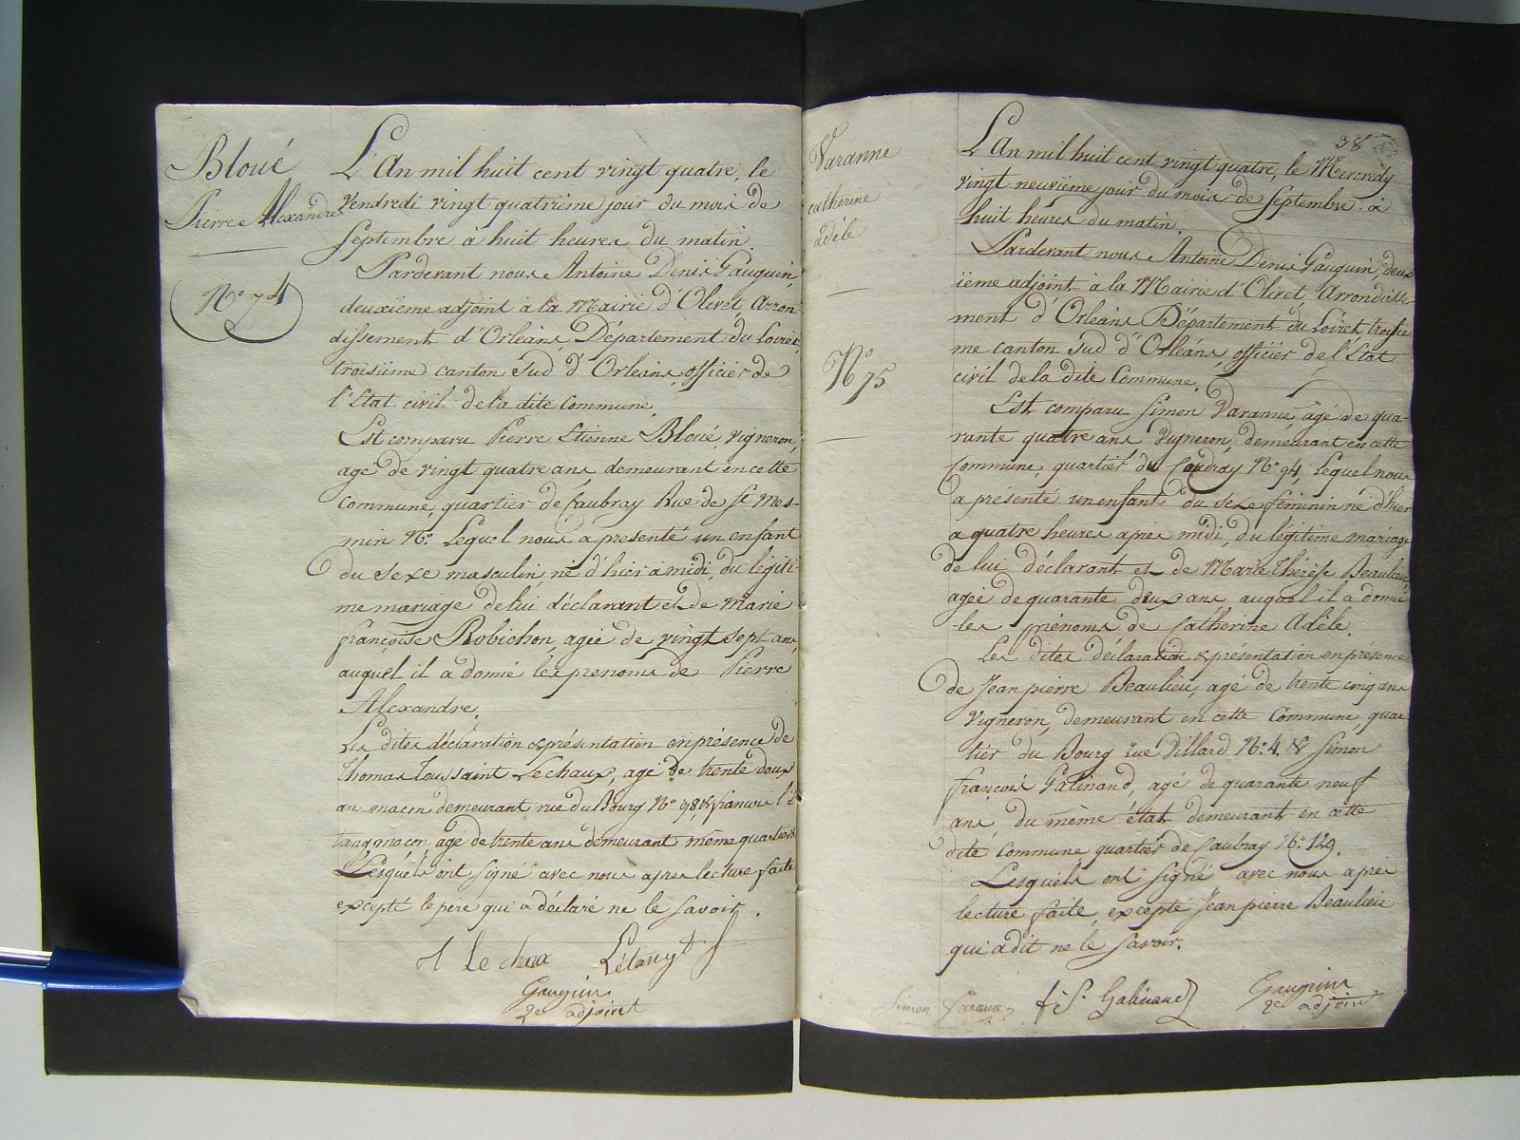 Bloué
Pierre Alexandre
No 74
L'An mil huit cent vingt quatre, le
vendredi vingt quatrième jour du mois de
Septembre à huit heures du matin.
Pardevant nous Antoine Denis Gauguin,
deuxième adjoint à la Mairie d'Olivet, Arron-
dissement d'Orléans, Département du Loiret,
troisième canton Sud d'Orléans, officier de
l'Etat civil de la dite Commune.
Est comparu Pierre Etienne Bloué vigneron,
agé de vingt quatre ans, demeurant en cette
commune, quartier de Caubray Rue de St Mes-
min No. Lequel nous a presenté un enfant
du sexe masculin, né d'hier à midi, du légiti-
me mariage de lui déclarant et de Marie
françoise Robichon, agée de vingt sept ans,
auquel il a donné les prenoms de Pierre
Alexandre.
Les dites déclaration & présentation en présence de
Thomas Toussaint Lechaux, agé de trente deux
ans macon demeurant rue du Bourg No 98, & francois l'é
tang macon, agé de trente ans demeurant même quartier
Lesquels ont signé avec nous apres lecture faite
excepté le pere qui a déclaré ne le savoir.
Le chaux Létang
Gauguin
2e adjoint
38
Varanne
catherine
adèle
No 75
L'An mil huit cent vingt quatre, le Mercredy
vingt neuvième jour du mois de Septembre à
huit heures du matin.
Pardevant nous Antoine Denis Gauguin, deux
ième adjoint à la Mairie d'Olivet, Arrondisse-
ment d'Orléans Département du Loiret troisie
me canton Sud d'Orléans, officier de l'Etat
civil de la dite Commune.
Est comparu Simon Varanne, agé de qua-
rante quatre ans Vigneron, demeurant en cette
Commune, quartier du Coudray No 94, Lequel nous
a présenté un enfant du Sexe féminin né d'hier
a quatre heures après midi, du légitime mariage
de lui déclarant et de Marie thérèse Beaulieu,
agée de quarante deux ans auquel il a donné
les prénoms de Catherine Adèle.
Les dites déclaration & présentation en présence
de Jean pierre Beaulieu, agé de trente cinq ans
Vigneron, demeurant en cette Commune, quar
tier du Bourg rue Villard No 4. & Simon
françois Galinand, agé de quarante neuf
ans du même état demeurant en cette
dite Commune quartier de Caubray No 129.
Lesquels ont Signé avec nous après
lecture faite, excepté Jean pierre Beaulieu
qui a dit ne le Savoir.
Simon Varanne f: S. Galinand Gauguin
2e adjoint